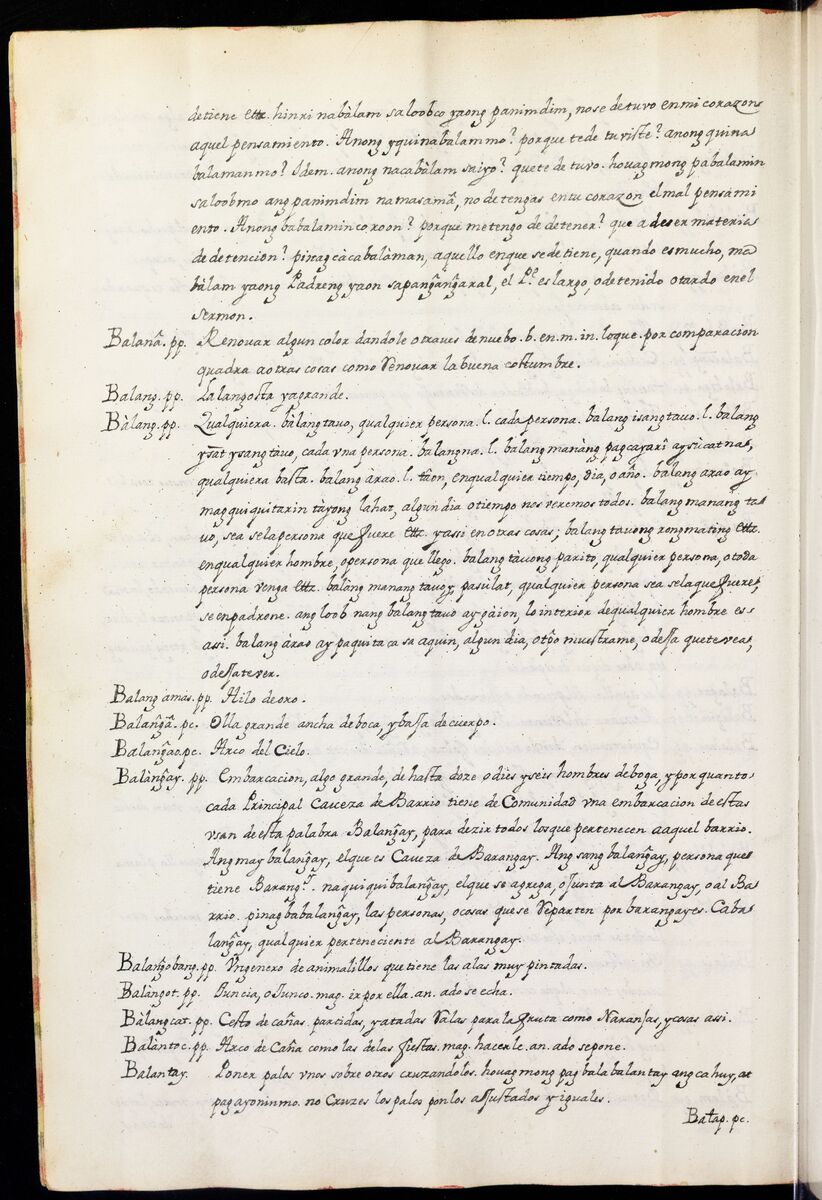 detiene ettz. hinri nabàlam saloobco yaong panimdim, nose detuvo enmi corazon
aquel pensamiento. Anong yquinabalammo? porque tede tuviste? anong quina
balamanmo? Idem. anong nacabàlam saiyo? quete detuvo. houagmong pabalamin
saloobmo ang panimdim namasamã, no detengas entu corazon el mal pensami
ento. Anong babalaminco, roon? porque metengo de detener? que a deser materia
de detencion? pinagcàcabalàman, aquello enque sedetiene, quando es mucho, ma
bàlam yaong Padreng yaon sapangãngãral, el P.e es largo, o detenido o tardo en el
sermon.
Balanã. pp. Renouar algun color dandole otraves denuebo. b. en. m. in. loque. por comparacion
quadra aotras cosas como renouar la buena costumbre.
Balang. pp. La langosta yagrande.
Bàlang. pp. Qualquiera. bàlang tauo, qualquier persona. l. cada persona. balang isang tauo. l. balang
ysãt ysang tàuo, cada vna persona. balangna. l. bàlang manàng pagcayarî aysìcatna,
qualquiera basta. balang àrao. l. tãon, enqualquier tiempo, dia, o año. balang arao ay
magquiquitarin tàyong lahat, algun dia otiempo nos veremos todos. balang manang ta
uo, sea sela persona que fuere ettz. yassi en otras cosas; balang tauong rongmating ettz.
enqualquier hombre, opersona que llego. balang tàuong parito, qualquier persona, otoda
persona venga ettz. balàng manang tauoy, pasulat, qualquier persona sea sela que fuere,
se enpadrone. ang loob nang balang tauo ay gàion, lo interior dequalquier hombre es
assi. balang àrao ay paquita ca sa aquin, algun dia, otpõ muestrame, odessa quete vea,
odessatever.
Balang amas. pp. Hilo de oro.
Balangã. pc. Olla grande ancha de boca, y bassa de cuerpo.
Balangão. pc. Arco del Cielo.
Balàngãy. pp. Embarcacion, algo grande, de hasta doze odies yseis hombres deboga, y por quanto
cada Principal Caueza de Barrio tiene de Comunidad vna embarcacion de estas
vsan de esta palabra Balangãy, para dezir todos losque pertenecen aaquel barrio.
Ang may balangãy, elque es Caveza de Barangay. Ang sang balangãy, persona que
tiene Barang.y naquiquibalangãy, elque se agrega, o Junta al Barangay, o al Ba
rrio. pinagbabalangãy, las personas, ocosas quese reparten por barangayes. Caba
langãy, qualquier perteneciente al Barangay.
Balangõbang. pp. Vn genero de animalillos que tiene las alas muy pintadas.
Balàngot. pp. Juncia, o Junco. mag. ir por ella. an. ado se echa.
Bàlangcat. pp. Cesto de cañas. partidas, yatadas ralas para la fruta como Naranjas, ycosas assi.
Balàntoc. pp. Arco de Caña como las delas fiestas. mag. hacerle. an. ado sepone.
Balantay. Poner palos vnos sobre otros cruzandolos. houagmong pagbalabalantay ang cahuy, at
pagayoninmo. no Cruzes los palos ponlos assustados y iguales.
Batap. pc.